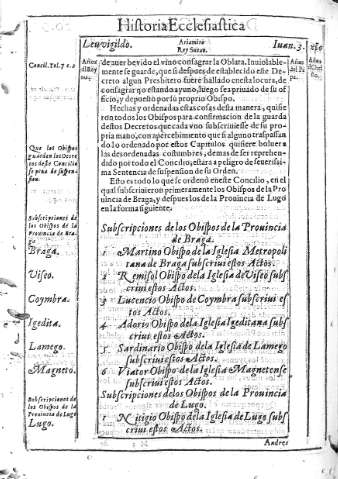 Historia Ecclesiastica
Leuvigildo.
Ariamiro
Rey Sueuo.
Iuan. 3.
Años
del Rey
Años
del Pa
Concil. Tol. 7. c. 2
de auer beuido el vino consagrar la Oblata. Inuiolable-
mente se guarde, que si despues de establecido este De
creto algun Presbitero fuere hallado en esta locura, de
consagrar no estando ayuno, luego sea priuado de su of
ficio, y depuesto por su proprio Obispo.
Hechas y ordenadas estas cosas desta manera, quisie
ron todos los Obispos para confirmacion de la guarda
destos Decretos que cada vno subscriuiesse de su pro-
pria mano, con apercebimiento que si alguno traspassan
do lo ordenado por estos Capitulos quisiere boluer a
las desordenadas costumbres, demas de ser reprehen-
dido por todo el Concilio, estara a peligro de seuerissi-
ma Sentencia de suspension de su Orden.
Que los Obispos
guarden los Decre
tos deste Concilio
so pena de suspen-
sion.
Esto es todo lo que se ordenò en este Concilio, en el
qual subscriuieron primeramente los Obispos de la Pro
uincia de Braga, y despues los de la Prouincia de Lugo
en la forma siguiente.
Subscripciones de
los Obispos de la
Prouincia de Bra-
ga.
Subscripciones de los Obispos de la Prouincia
de Braga.
Braga.
1 Martino Obispo de la Iglesia Metropoli
tana de Braga subscriui estos Actos.
Viseo.
2 Remisol Obispo de la Iglesia de Viseo subs
criui estos Actos.
Coymbra.
3 Lucencio Obispo de Coymbra subscriui es
tos Actos.
Igedita.
4 Adorio Obispo de la Iglesia Igeditana subs
criui estos Actos.
Lamego.
5 Sardinario Obispo de la Iglesia de Lamego
subscriui estos Actos.
Magneto.
6 Viator Obispo de la Iglesia Magnetense
subscriui estos Actos.
Subscripciones de
los Obispos de la
Prouincia de Lugo
Subscripciones de los Obispos de la Prouincia
de Lugo.
Lugo.
1 Nitigio Obispo de la Iglesia de Lugo subs
criui estos Actos.
Andres